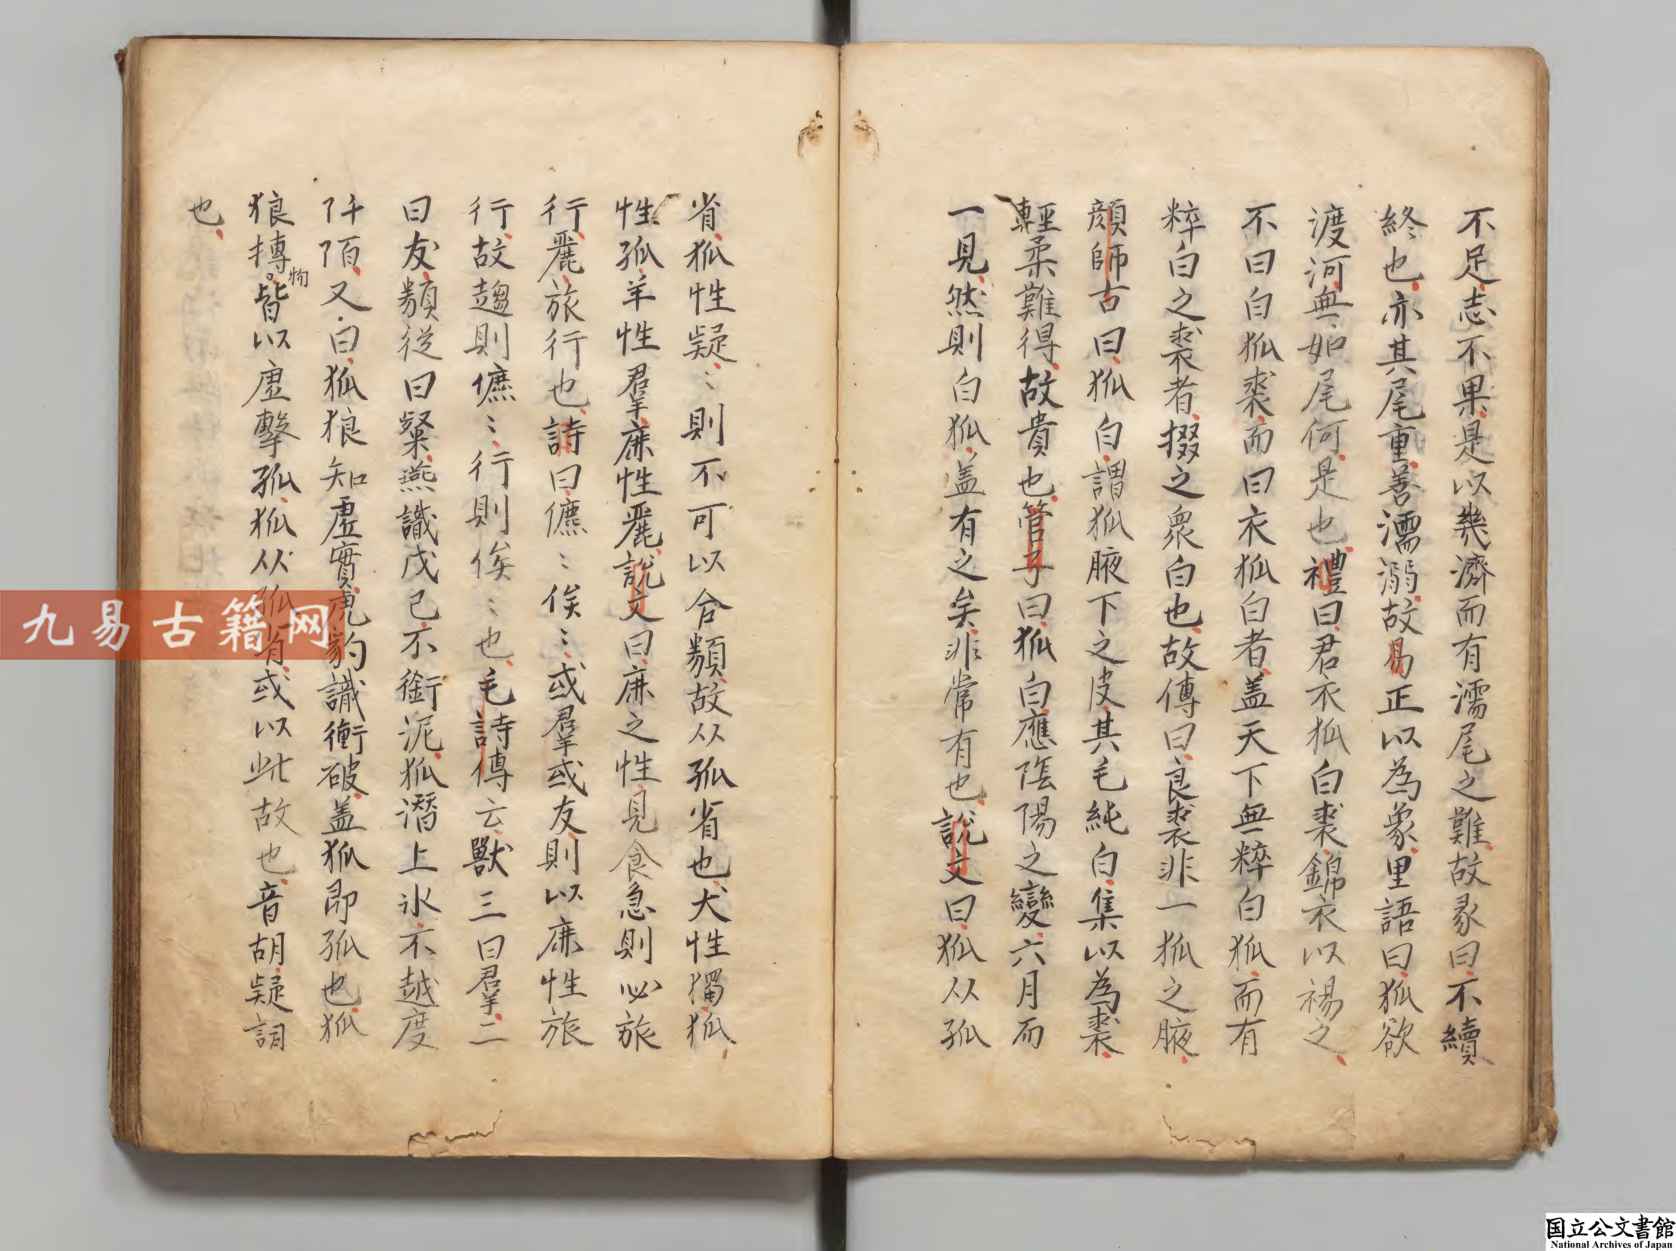 不足志不果是以幾濟而有濡尾之難故彖曰不續
終也亦其尾重善濡溺故易正以為象里語曰狐欲
渡河無如尾何是也禮曰君衣狐白裘錦衣以裼之
不曰白狐裘而曰衣狐白者蓋天下無粹白狐而有
粹白之裘者掇之衆白也故傳曰良裘非一狐之腋
顔師古曰狐白謂狐腋下之皮其毛純白集以為裘
輕柔難得故貴也管子曰狐白應陰陽之變六月而
一見然則白狐盖有之矣非常有也說文曰狐从孤
省狐性疑〻則不可以合類故从孤省也犬性獨狐
性孤羊性羣鹿性麗說文曰鹿之性見食急則必旅
行麗旅行也詩曰儦〻俟〻或羣或友則以鹿性旅
行故趨則儦〻行則俟〻也毛詩傳云獸三曰羣二
曰友類從曰粲燕識戊己不銜泥狐潛上氷不越度
阡陌又曰狐狼知虛實虎豹識衝破盖狐即孤也狐
狼搏物皆以虛擊孤狐从孤省或以此故也音胡疑詞
也
九易古籍网
国立公文書館
National Archives of Japan